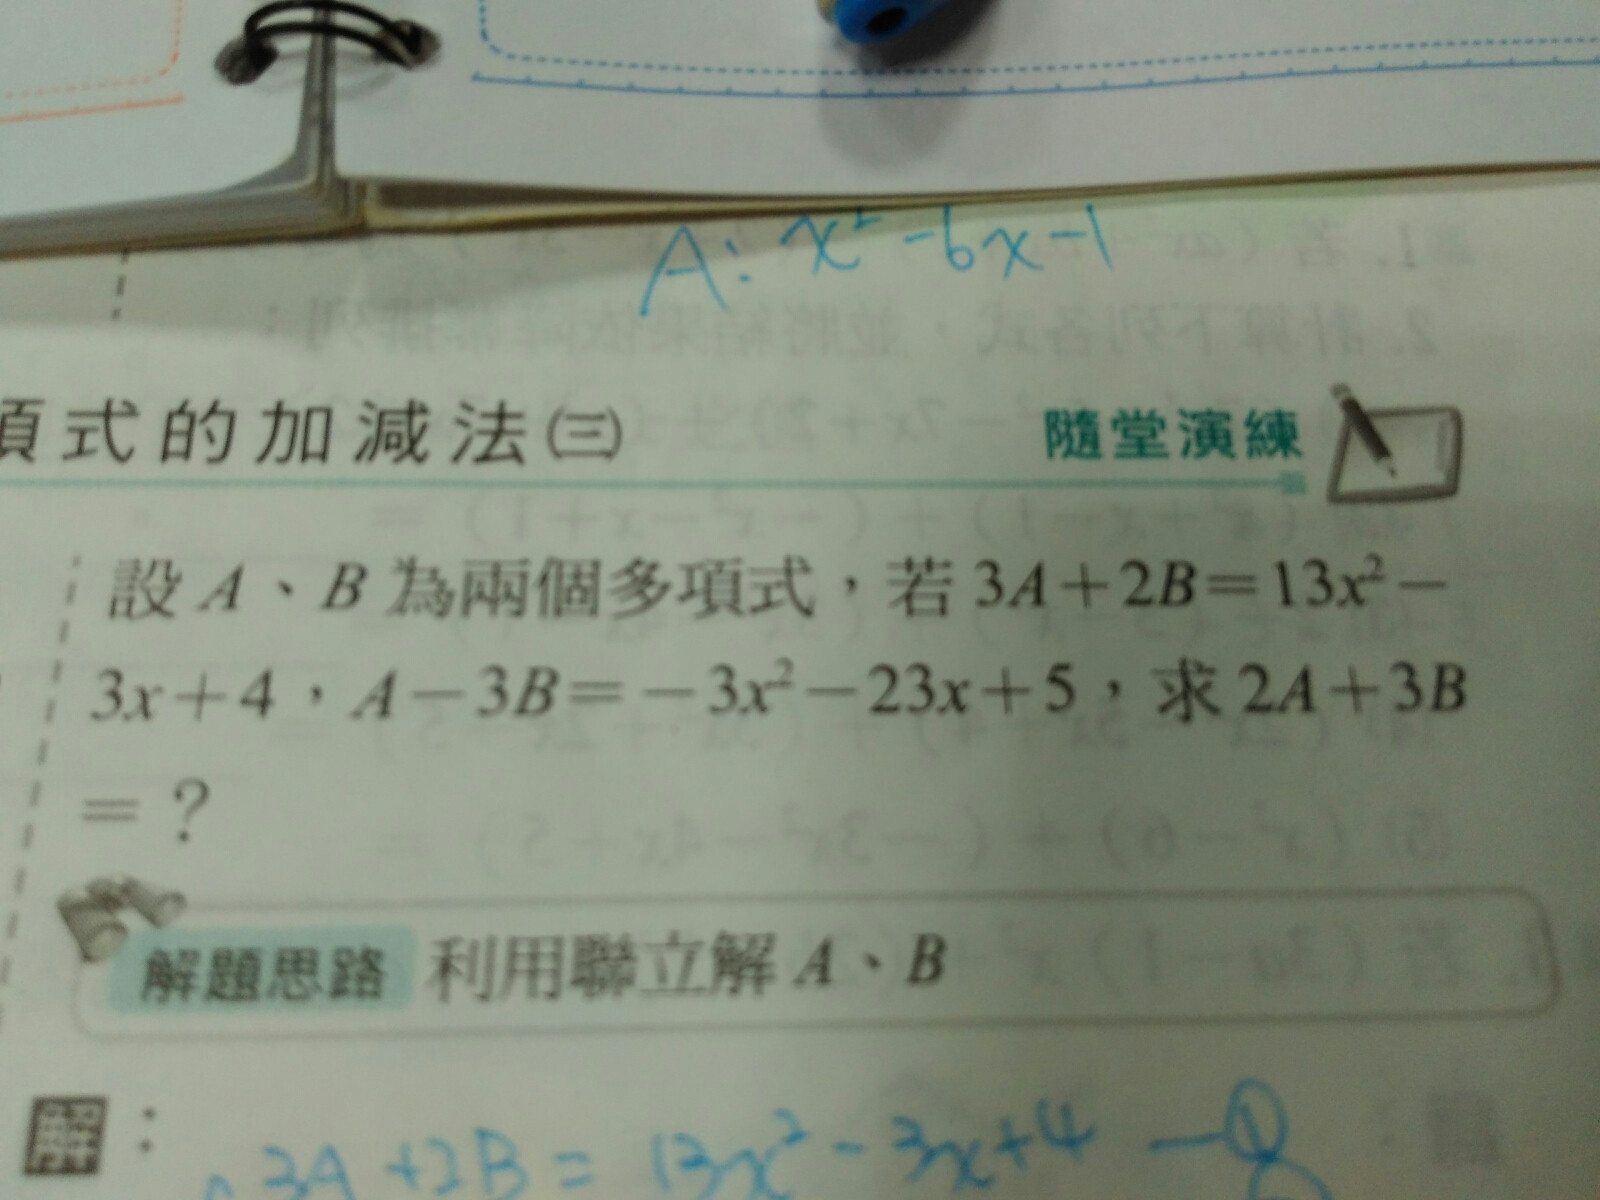 A: x² -6x-1
項式的加減法㈢
隨堂演練
設A、B為兩個多項式，若3A+2B=13x²-
3x+4，A-3B=-3x²-23x+5，求2A+3B
=？
解題思路 利用聯立解A、B
解：
3A+2B=13x²-3x+4 —①